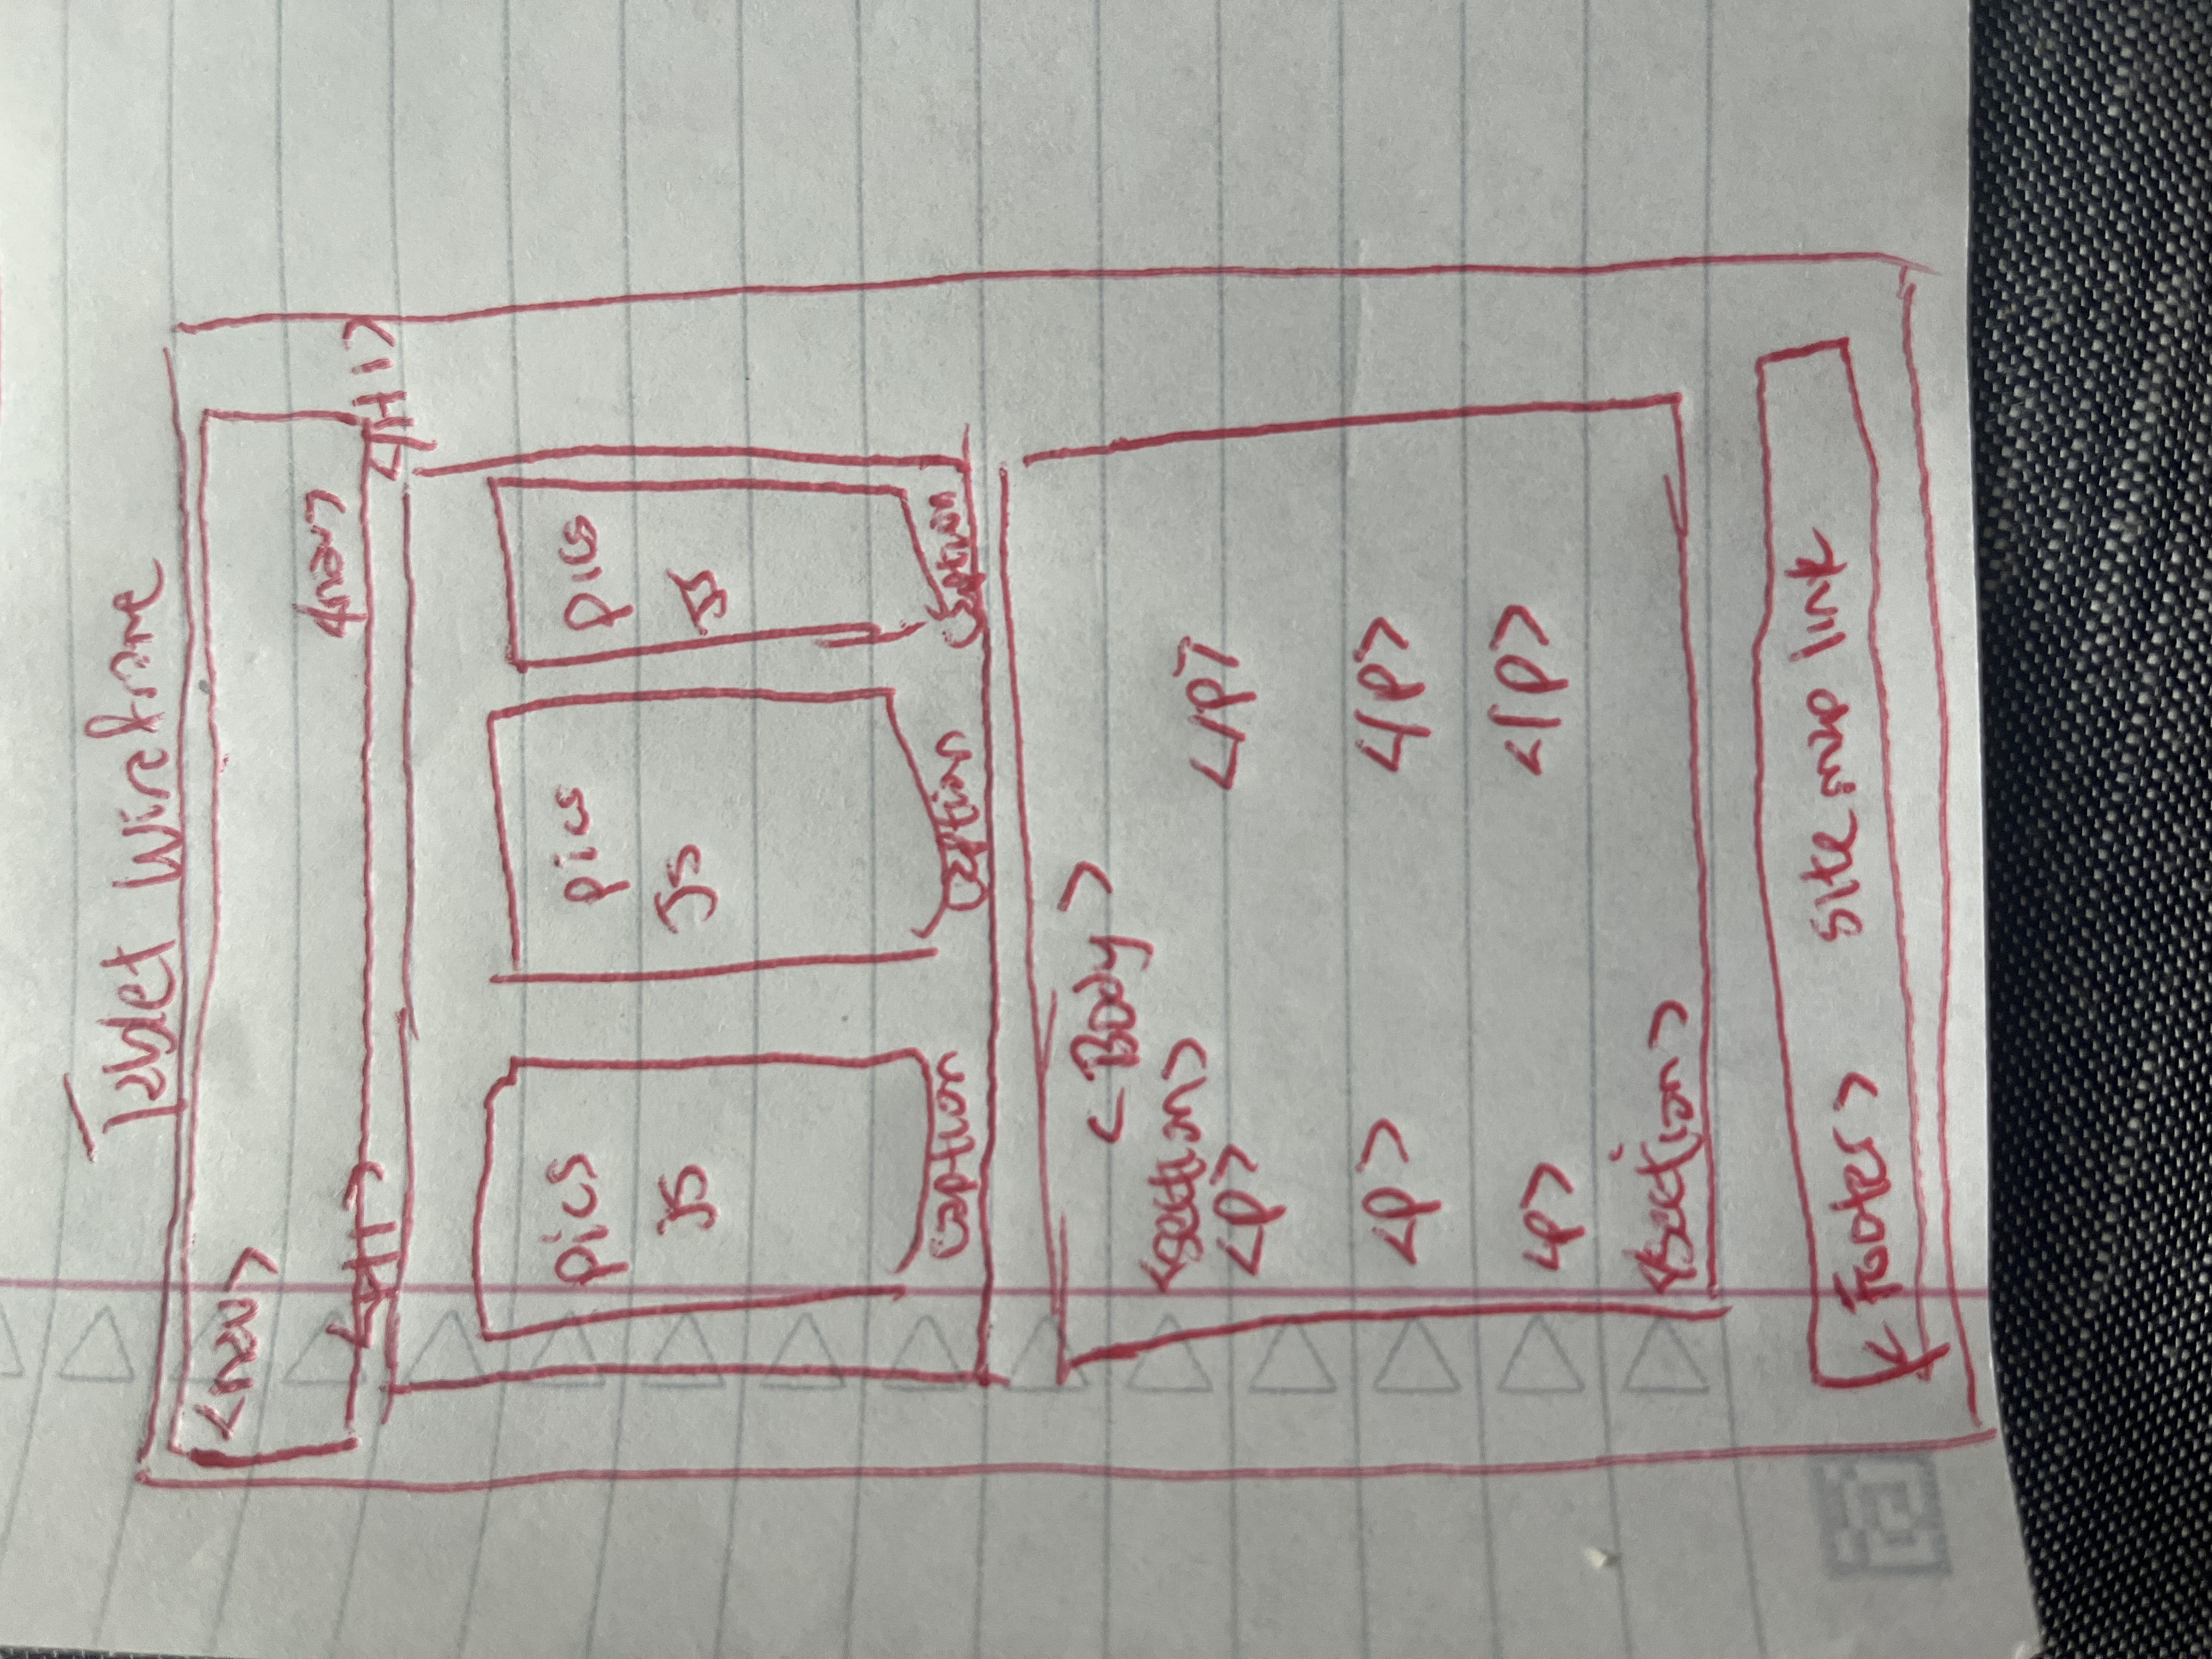 Tablet Wireframe
<nav>
</nav>
<H1> </H1>
pics pics pics
JS JS JS
caption caption caption
<Body>
<section>
<p> </p>
<p> </p>
<p> </p>
</section>
<Footer> site map link